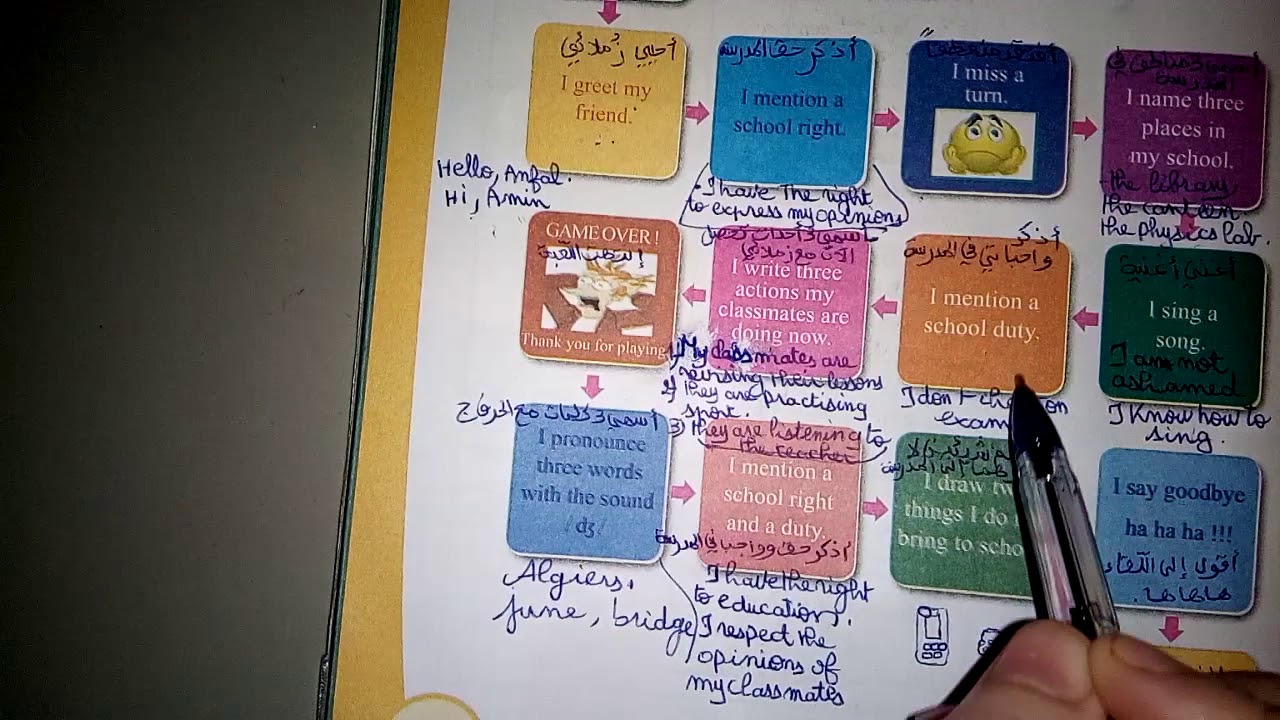 أحيي زملائي
I greet my
friend.
Hello, Anfal.
Hi, Amin
أذكر حق المدرسة
I mention a
school right.
I have the right
to express my opinions
I miss a
turn.
I name three
places in
my school.
the library,
the canteen.
the physics lab.
GAME OVER!
Thank you for playing
I write three
actions my
classmates are
doing now.
1) My classmates are
revising their lessons
2) They are practising
sport.
3) they are listening to
the teacher
أذكر
واجباتي في المدرسة
I mention a
school duty.
I don't on
exam
أغني أغنية
I sing a
song.
I am not
ashamed
I know how to
sing.
I pronounce
three words
with the sound
/dʒ/
Algiers,
june, bridge
I mention a
school right
and a duty.
أذكر حق وواجب في المدرسة
I have the right
to education.
I respect the
opinions of
my classmates
I draw
things I do
bring to
I say goodbye
ha ha ha !!!
أقول إلى اللقاء
هاهاها.